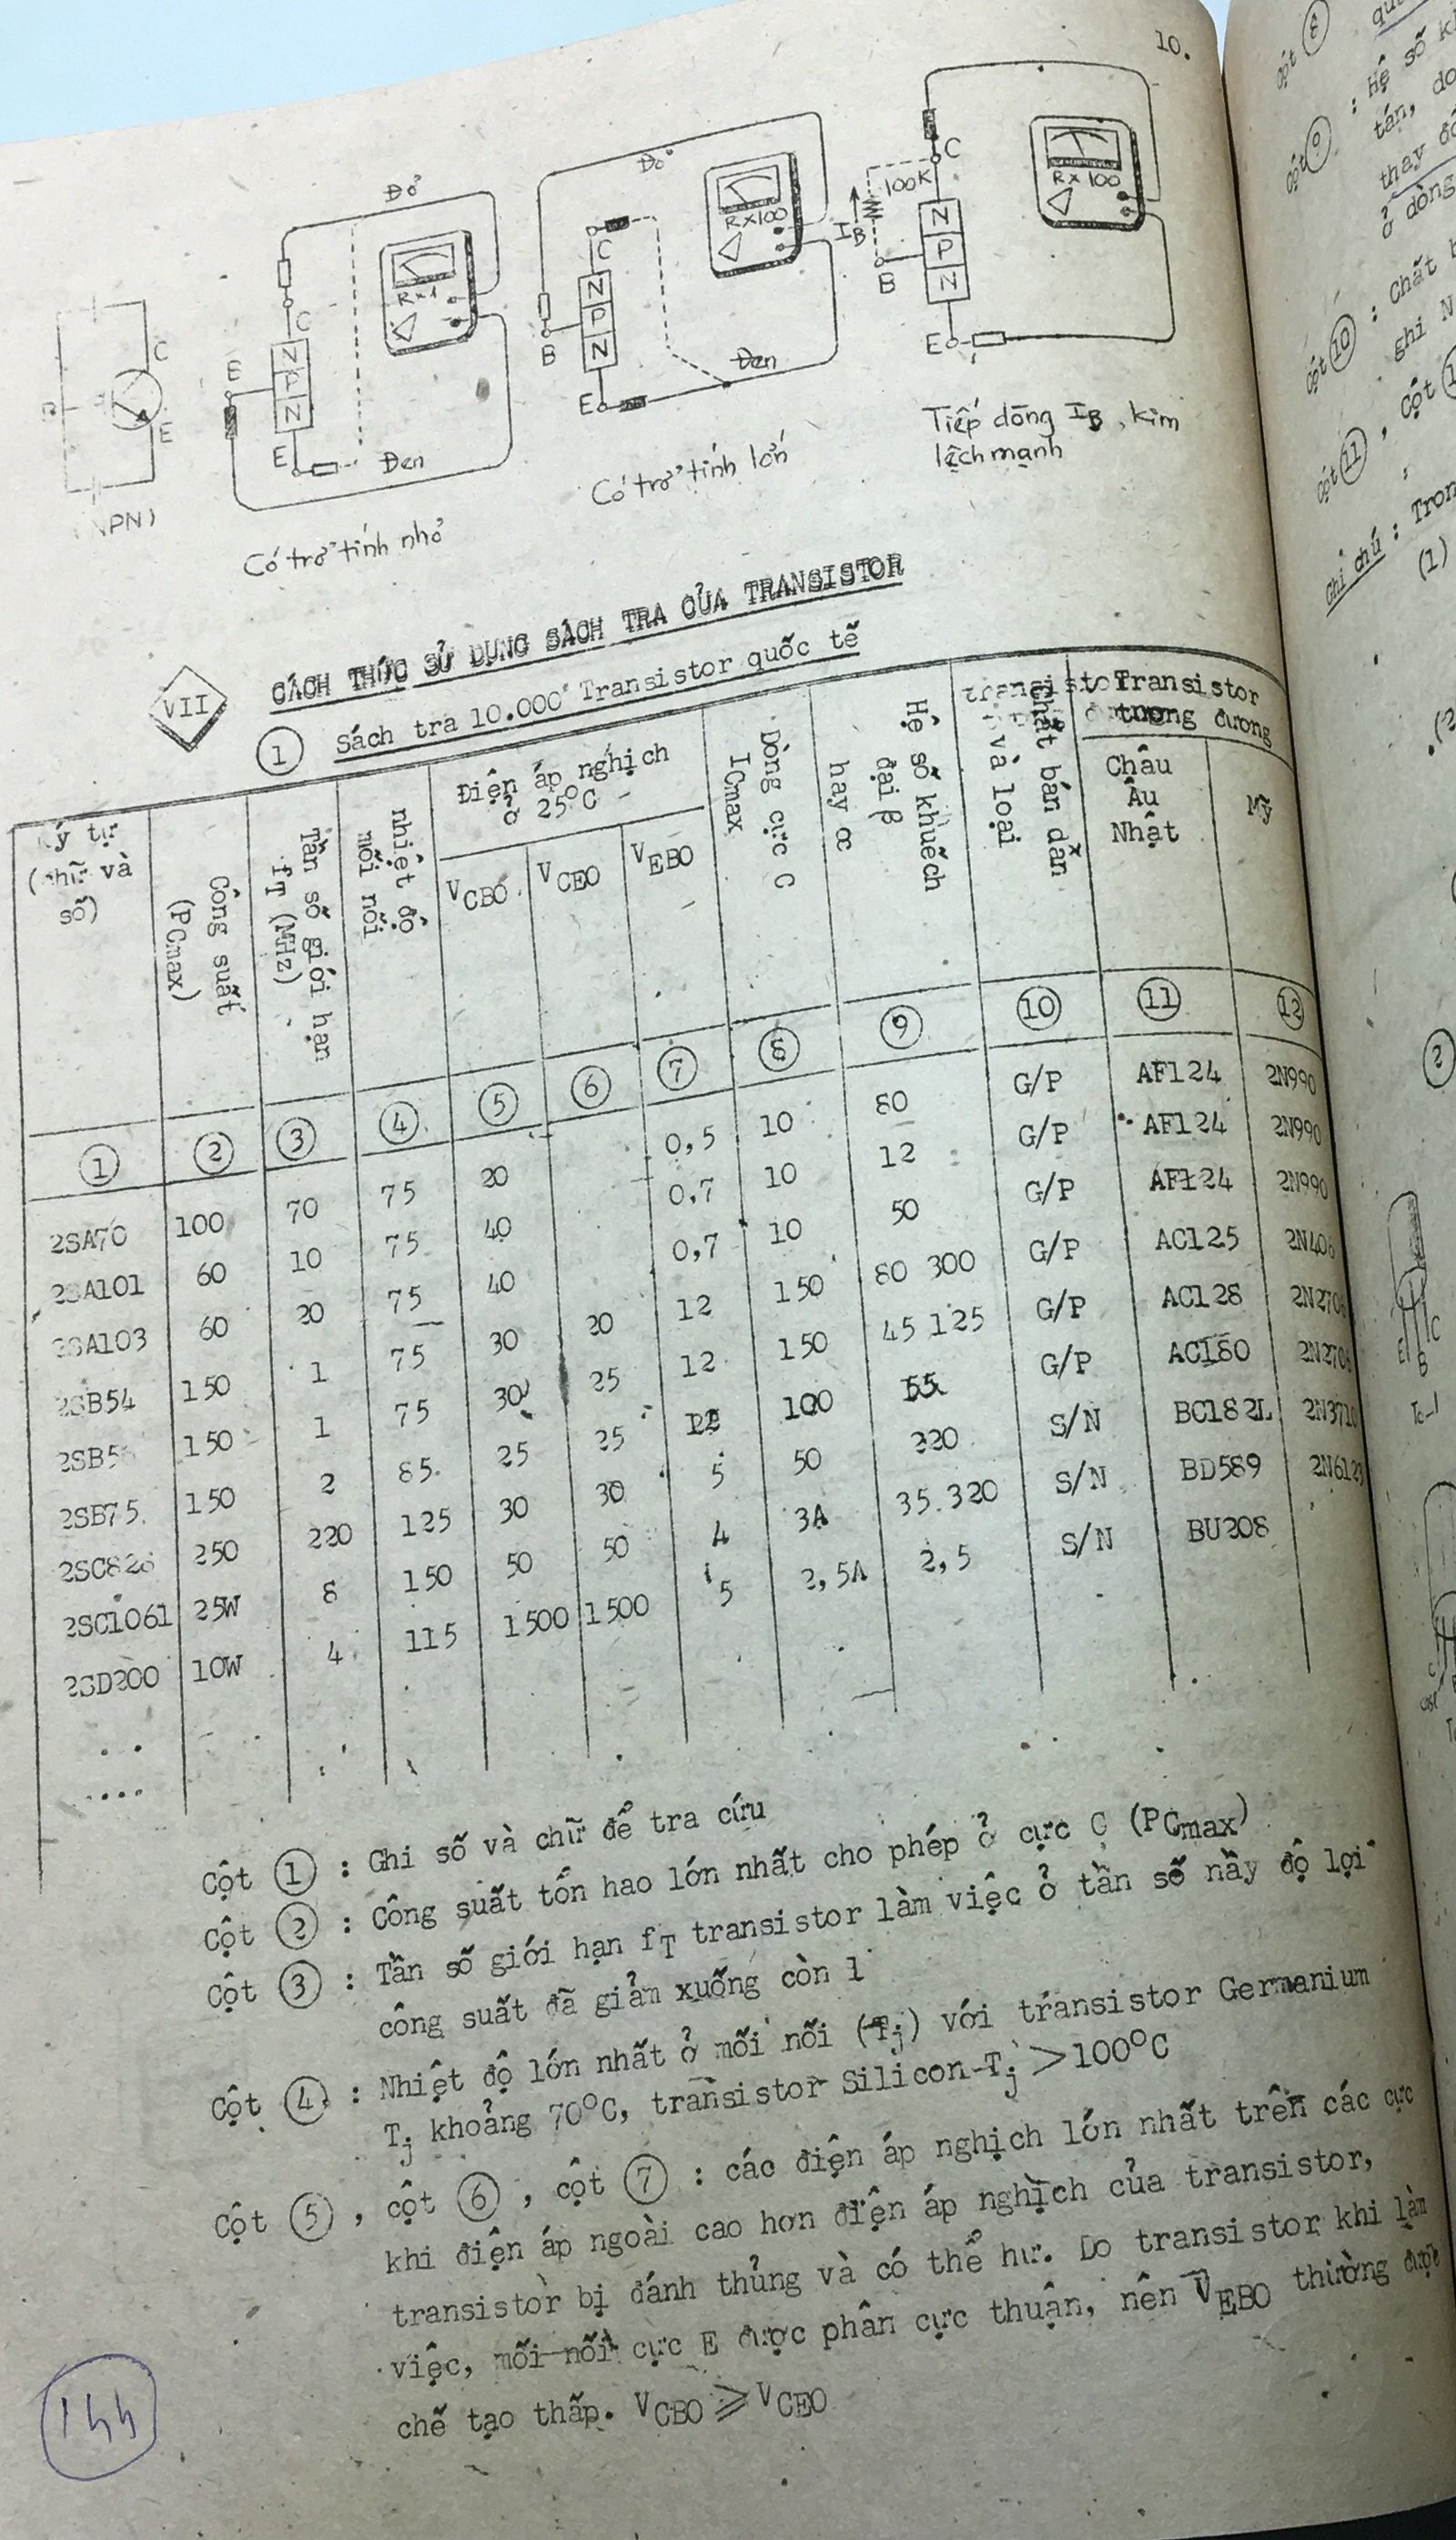 10.
Đỏ
Đỏ
C
100K
R x 100
Rx100
IB
N
P
N
B
C
N
P
N
B
E
E
Đen
Rx1
C
E
N
P
N
E
Đen
C
E
Tiếp dòng IB, kim
lệch mạnh
Có trở tính lớn
Có trở tính nhỏ
VII
CÁCH THỨC SỬ DỤNG SÁCH TRA CỦA TRANSISTOR
1 Sách tra 10.000 Transistor quốc tế
Ký tự (chữ và số)
Công suất (PCmax)
Tần số giới hạn fT (MHz)
nhiệt độ mối nối
Điện áp nghịch ở 25°C
VCBO VCEO VEBO
Dòng cực C ICmax
Hệ số khuếch đại β hay α
Chất bán dẫn và loại
Transistor tương đương
Châu Âu Nhật
Mỹ
1 2 3 4 5 6 7 8 9 10 11 12
2SA70 100 70 75 20 0,5 10 80 G/P AF124 2N990
2SA101 60 10 75 40 0,7 10 12 G/P AF124 2N990
2SA103 60 20 75 40 0,7 10 50 G/P AF124 2N990
2SB54 150 1 75 30 20 12 150 80 300 G/P AC125 2N406
150 1 75 30 25 12 150 45 125 G/P AC128
2SB75 150 2 85 25 25 12 100 55 G/P AC180
2SC828 250 220 125 30 30 5 50 220 S/N BC182L 2N3710
2SC1061 25W 8 150 50 50 4 3A 35.320 S/N BD589
2SD200 10W 4 115 1500 1500 5 2,5A 2,5 S/N BU208
. .
....
Cột 1 : Ghi số và chữ để tra cứu
Cột 2 : Công suất tổn hao lớn nhất cho phép ở cực C (PCmax)
Cột 3 : Tần số giới hạn fT transistor làm việc ở tần số nầy độ lợi
công suất đã giảm xuống còn 1
Cột 4 : Nhiệt độ lớn nhất ở mối nối (Tj) với transistor Germanium
Tj khoảng 70°C, transistor Silicon-Tj >100°C
Cột 5 , cột 6 , cột 7 : các điện áp nghịch lớn nhất trên các cực
khi điện áp ngoài cao hơn điện áp nghịch của transistor,
transistor bị đánh thủng và có thể hư. Do transistor khi làm
việc, mối nối cực E được phân cực thuận, nên VEBO thường được
chế tạo thấp. VCBO ⩾ VCEO
144
Cột 8
Cột 9 : Hệ số
tán,
thay
ở dòng
Cột 10 : Chất
ghi N
Cột 11 , Cột
Ghi chú :
(1)
2